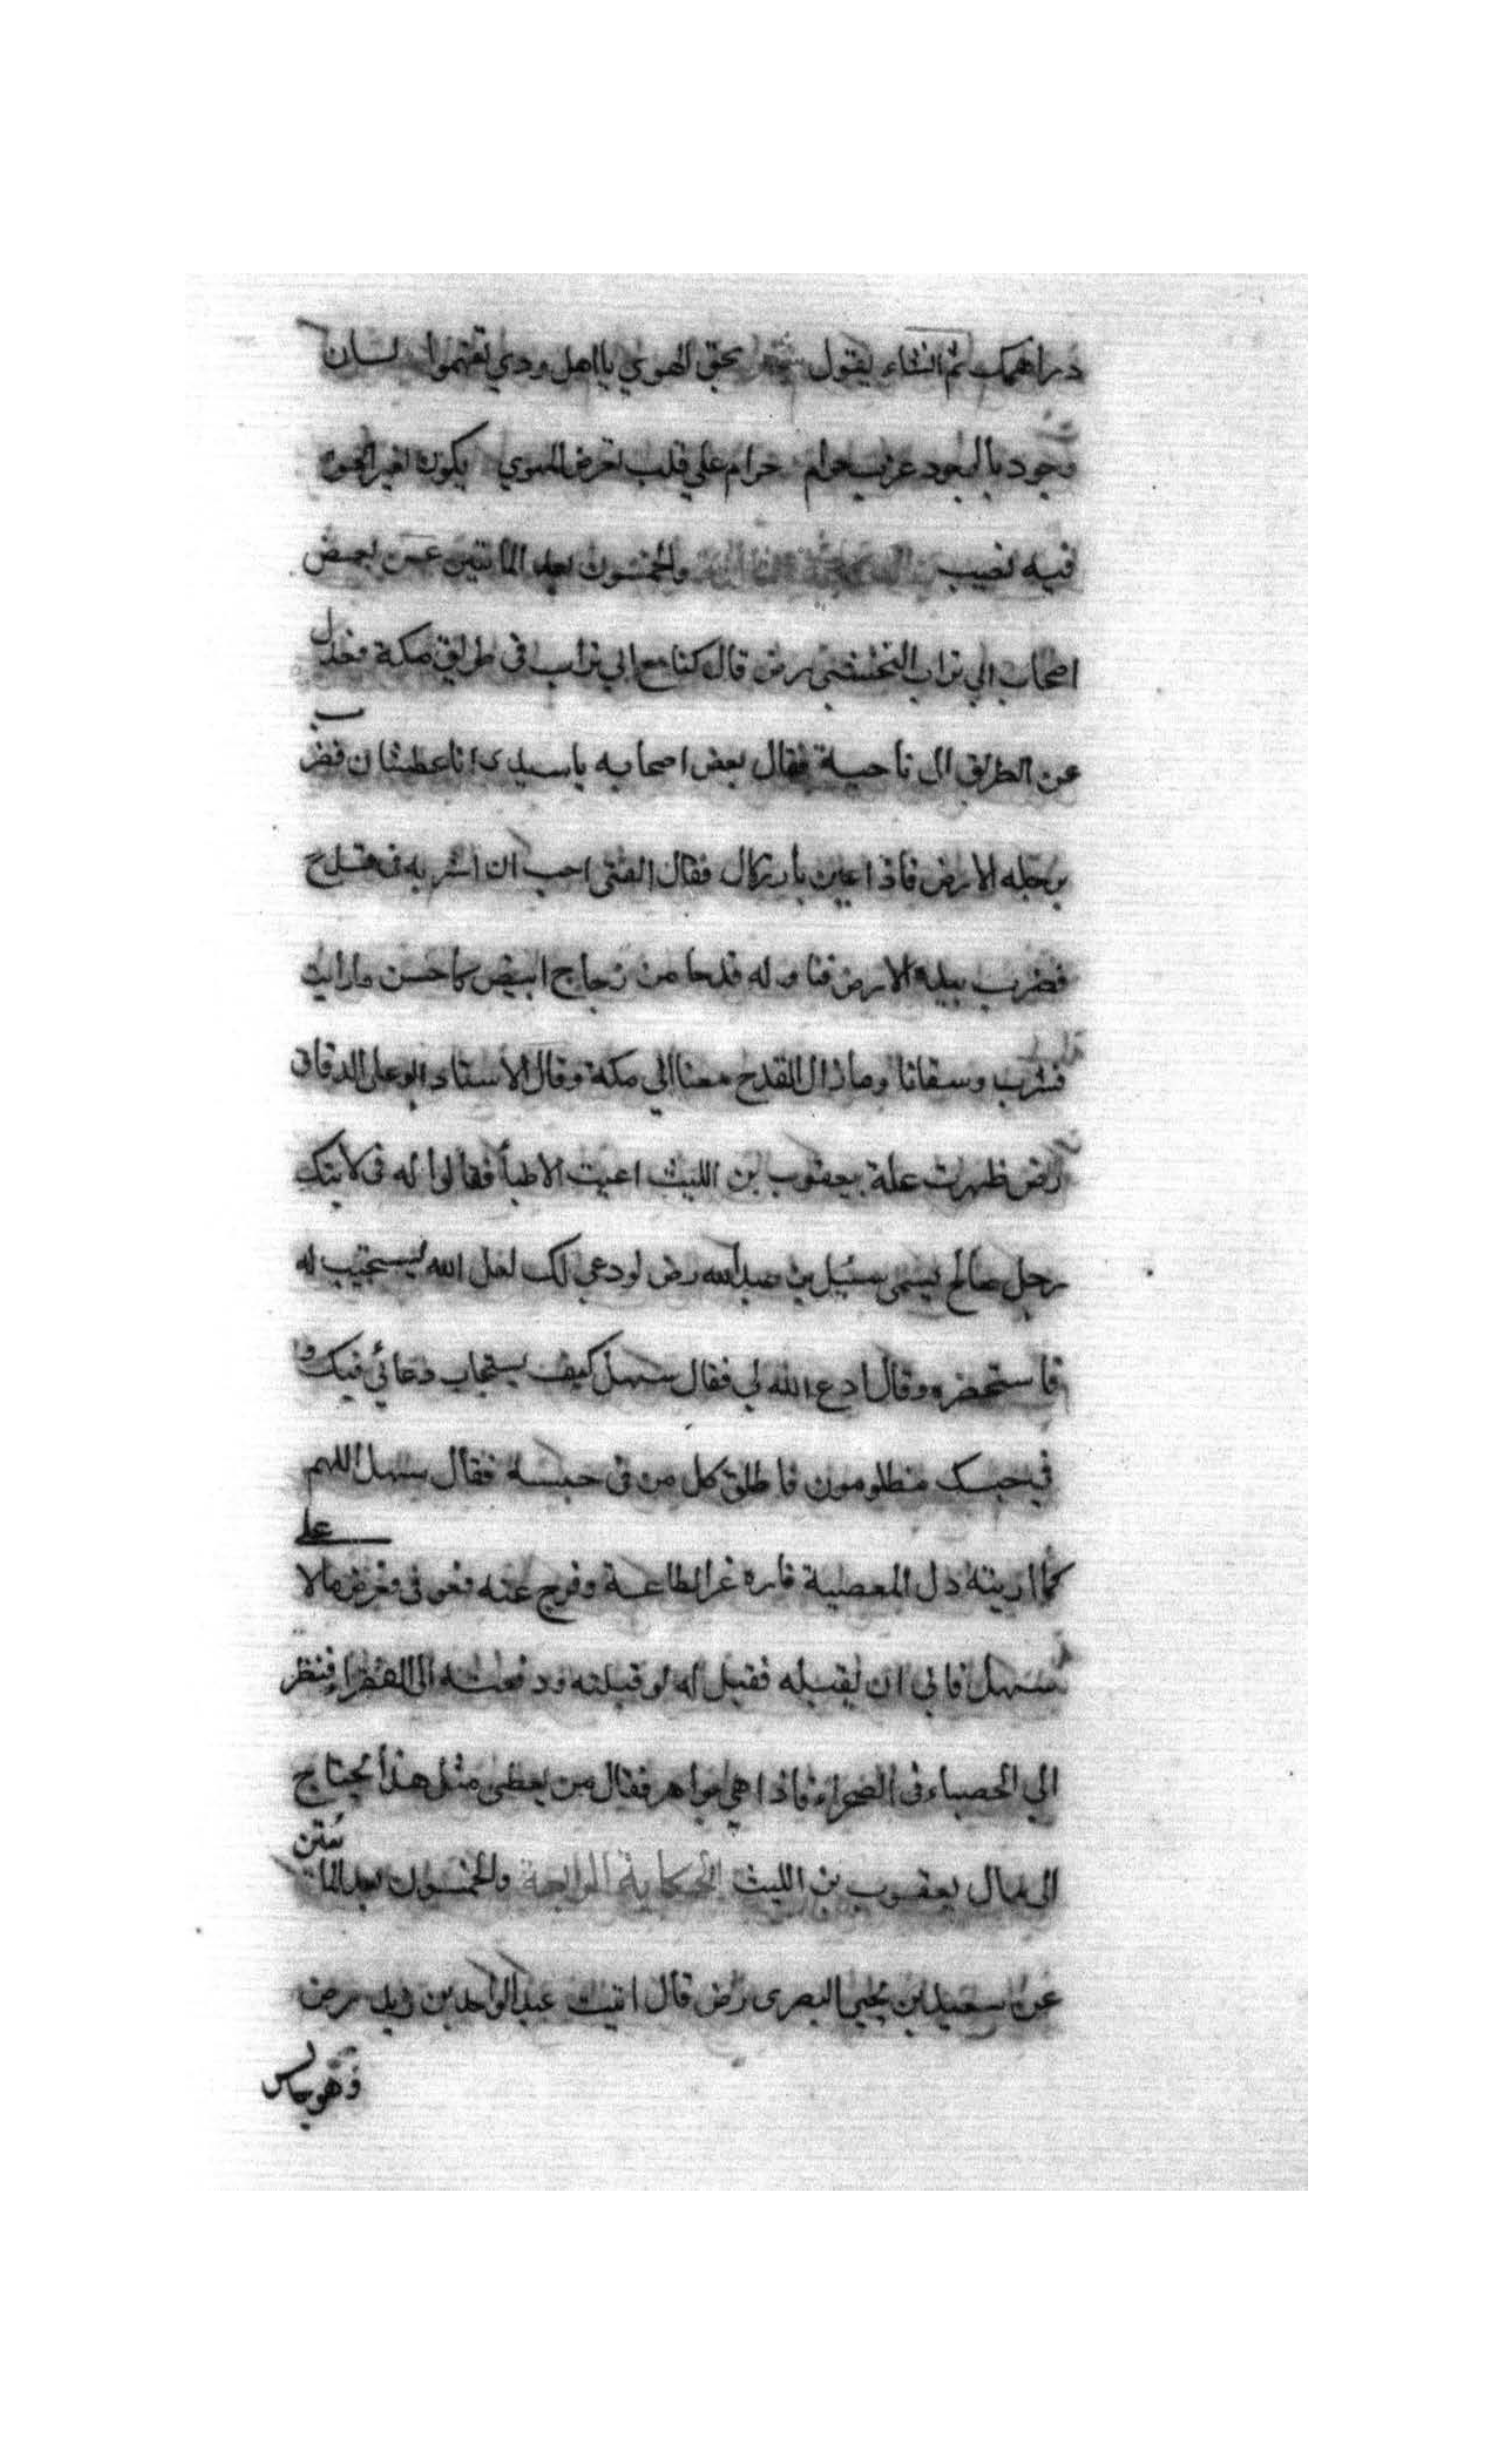 دراهمك ثم انشاء يقول شعر بحق الهوي يا اهل ودي تفهموا لسان
وجود بالوجود غريب حرام حرام علي قلب تعرض للهوي يكون لغير الحق
فيه نصيب الحكاية الثالثة والخمسون بعد المأتين عن بعض
اصحاب ابي تراب النخشبي رض قال كنا مع ابي تراب في طريق مكة فعدل
عن الطريق الى ناحية فقال بعض اصحابه يا سيدي انا عطشان فضرب
برجله الارض فاذا عين باء زلال فقال الفتى احب ان اشربه في قدح
فضرب بيده الارض فناوله قدحا من زجاج ابيض كاحسن ما رايت
فشرب وسقانا وما زال القدح معنا الي مكة وقال الاستاد ابو علي الدقاق
رض ظهرت علة بيعقوب بن الليث اعيت الاطبأ فقالوا له في ولايتك
رجل صالح يسمى سهل بن عبد الله رض لو دعي لك لعل الله يستجيب له
فاستحضره وقال ادع الله لي فقال سهل كيف يستجاب دعائي فيك و
في حبسك مظلومون فاطلق كل من في حبسه فقال سهل اللهم
كما اريته ذل المعصية فاره عز الطاعة وفرج عنه فعوفي فعرض مالا على
سهل فابي ان يقبله فقيل له لو قبلته ودفعته الى الفقراء فنظر
الي الحصباء في الصحراء فاذا هي جواهر فقال من يعطى مثل هذا يحتاج
الى مال يعقوب بن الليث الحكاية الرابعة والخمسون بعد المأتين
عن سعيد بن يحيى البصرى رض قال اتيت عبد الواحد بن زيد رض
وهو جالس